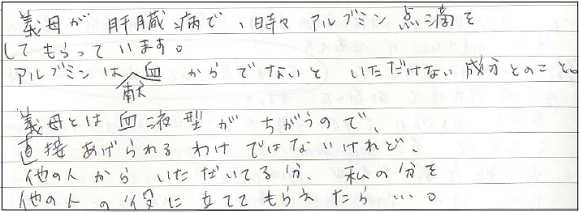 義母が 肝臓病で、時々 アルブミン 点滴を
してもらっています。
アルブミンは 献血 からでないと いただけない 成分とのこと。
義母とは 血液型が ちがうので、
直接 あげられる わけ ではないけれど、
他の人から いただいてる分、 私の分を
他の人の 役に 立ててもらえたら…。